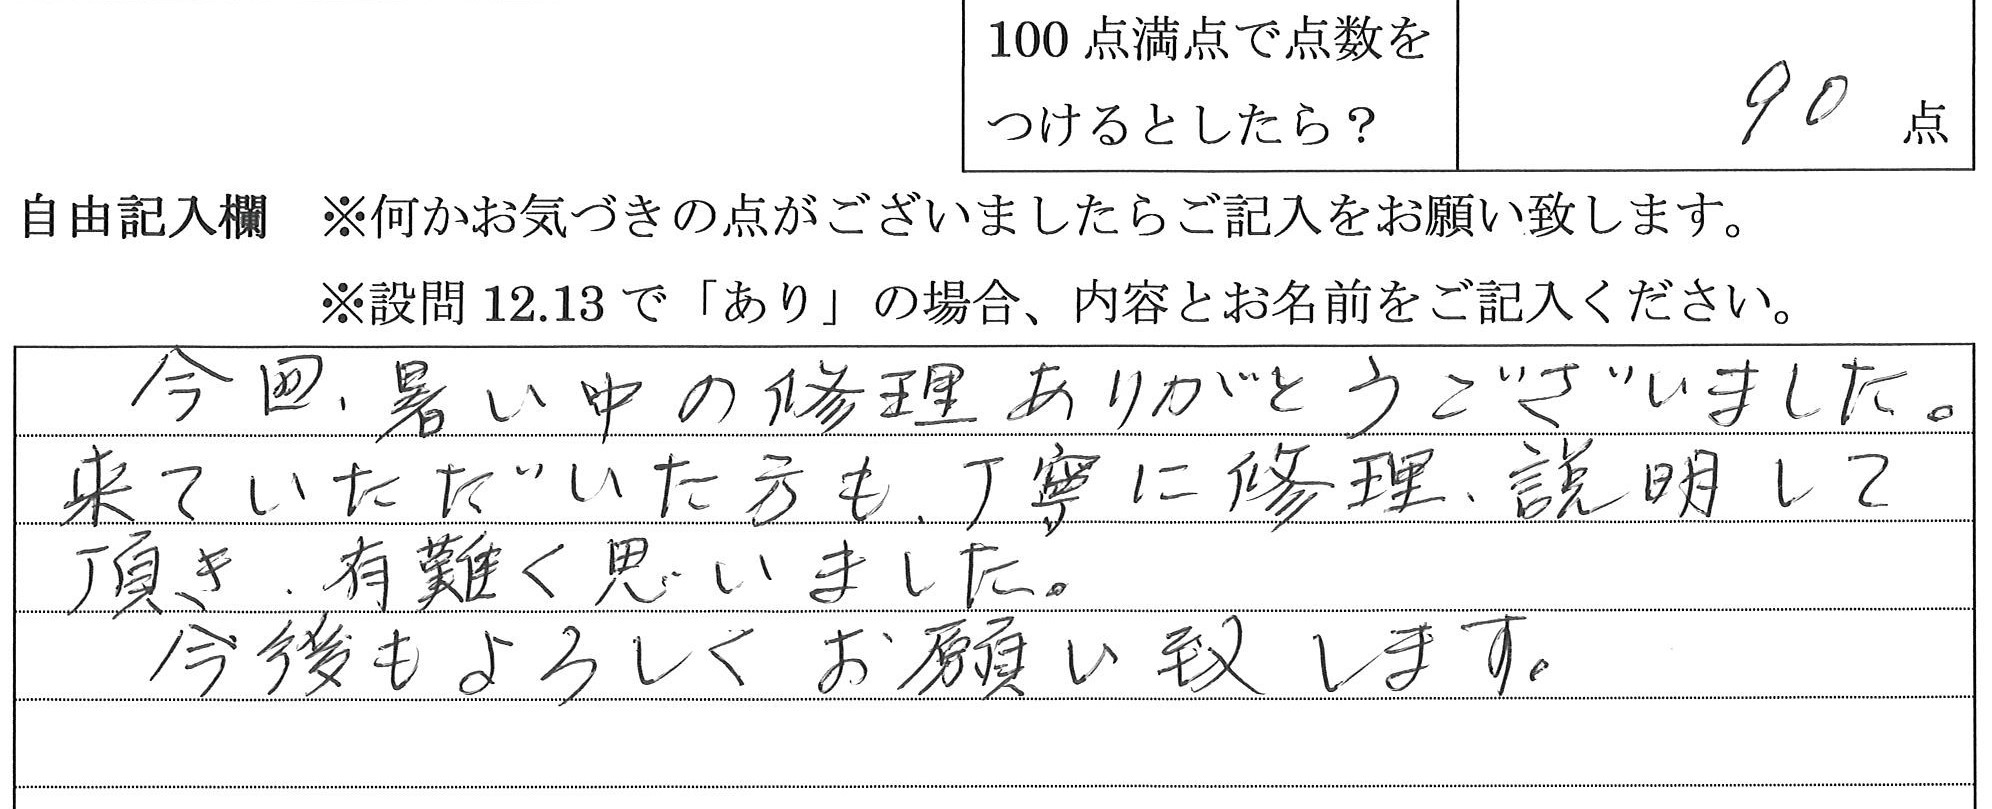 100点満点で点数を
つけるとしたら？
90 点
自由記入欄 ※何かお気づきの点がございましたらご記入をお願い致します。
※設問 12.13 で「あり」の場合、内容とお名前をご記入ください。
今回、暑い中の修理ありがとうございました。
来ていただいた方も、丁寧に修理、説明して
頂き、有難く思いました。
今後もよろしくお願い致します。